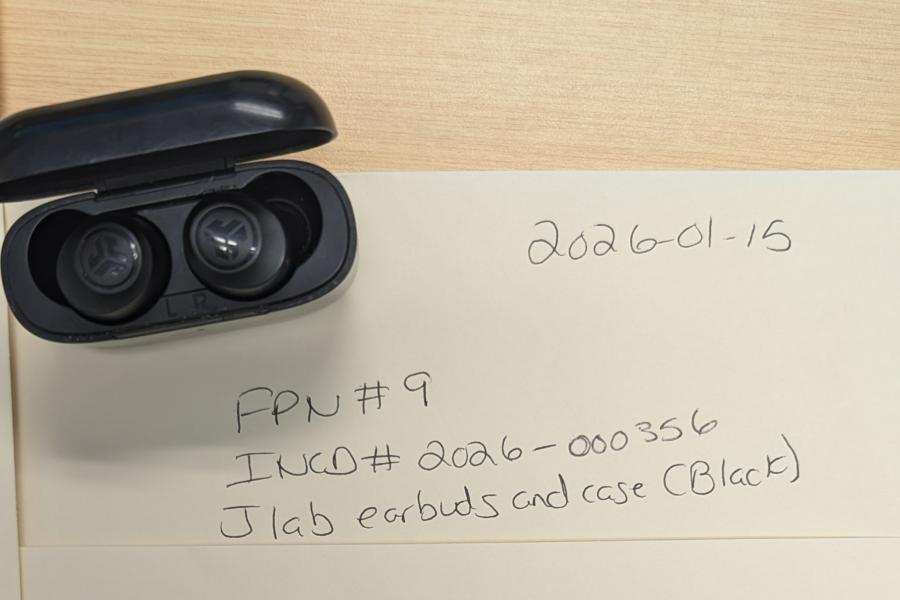 2026-01-15
L R
FPN # 9
INCD# 2026-000356
Jlab earbuds and case (Black)